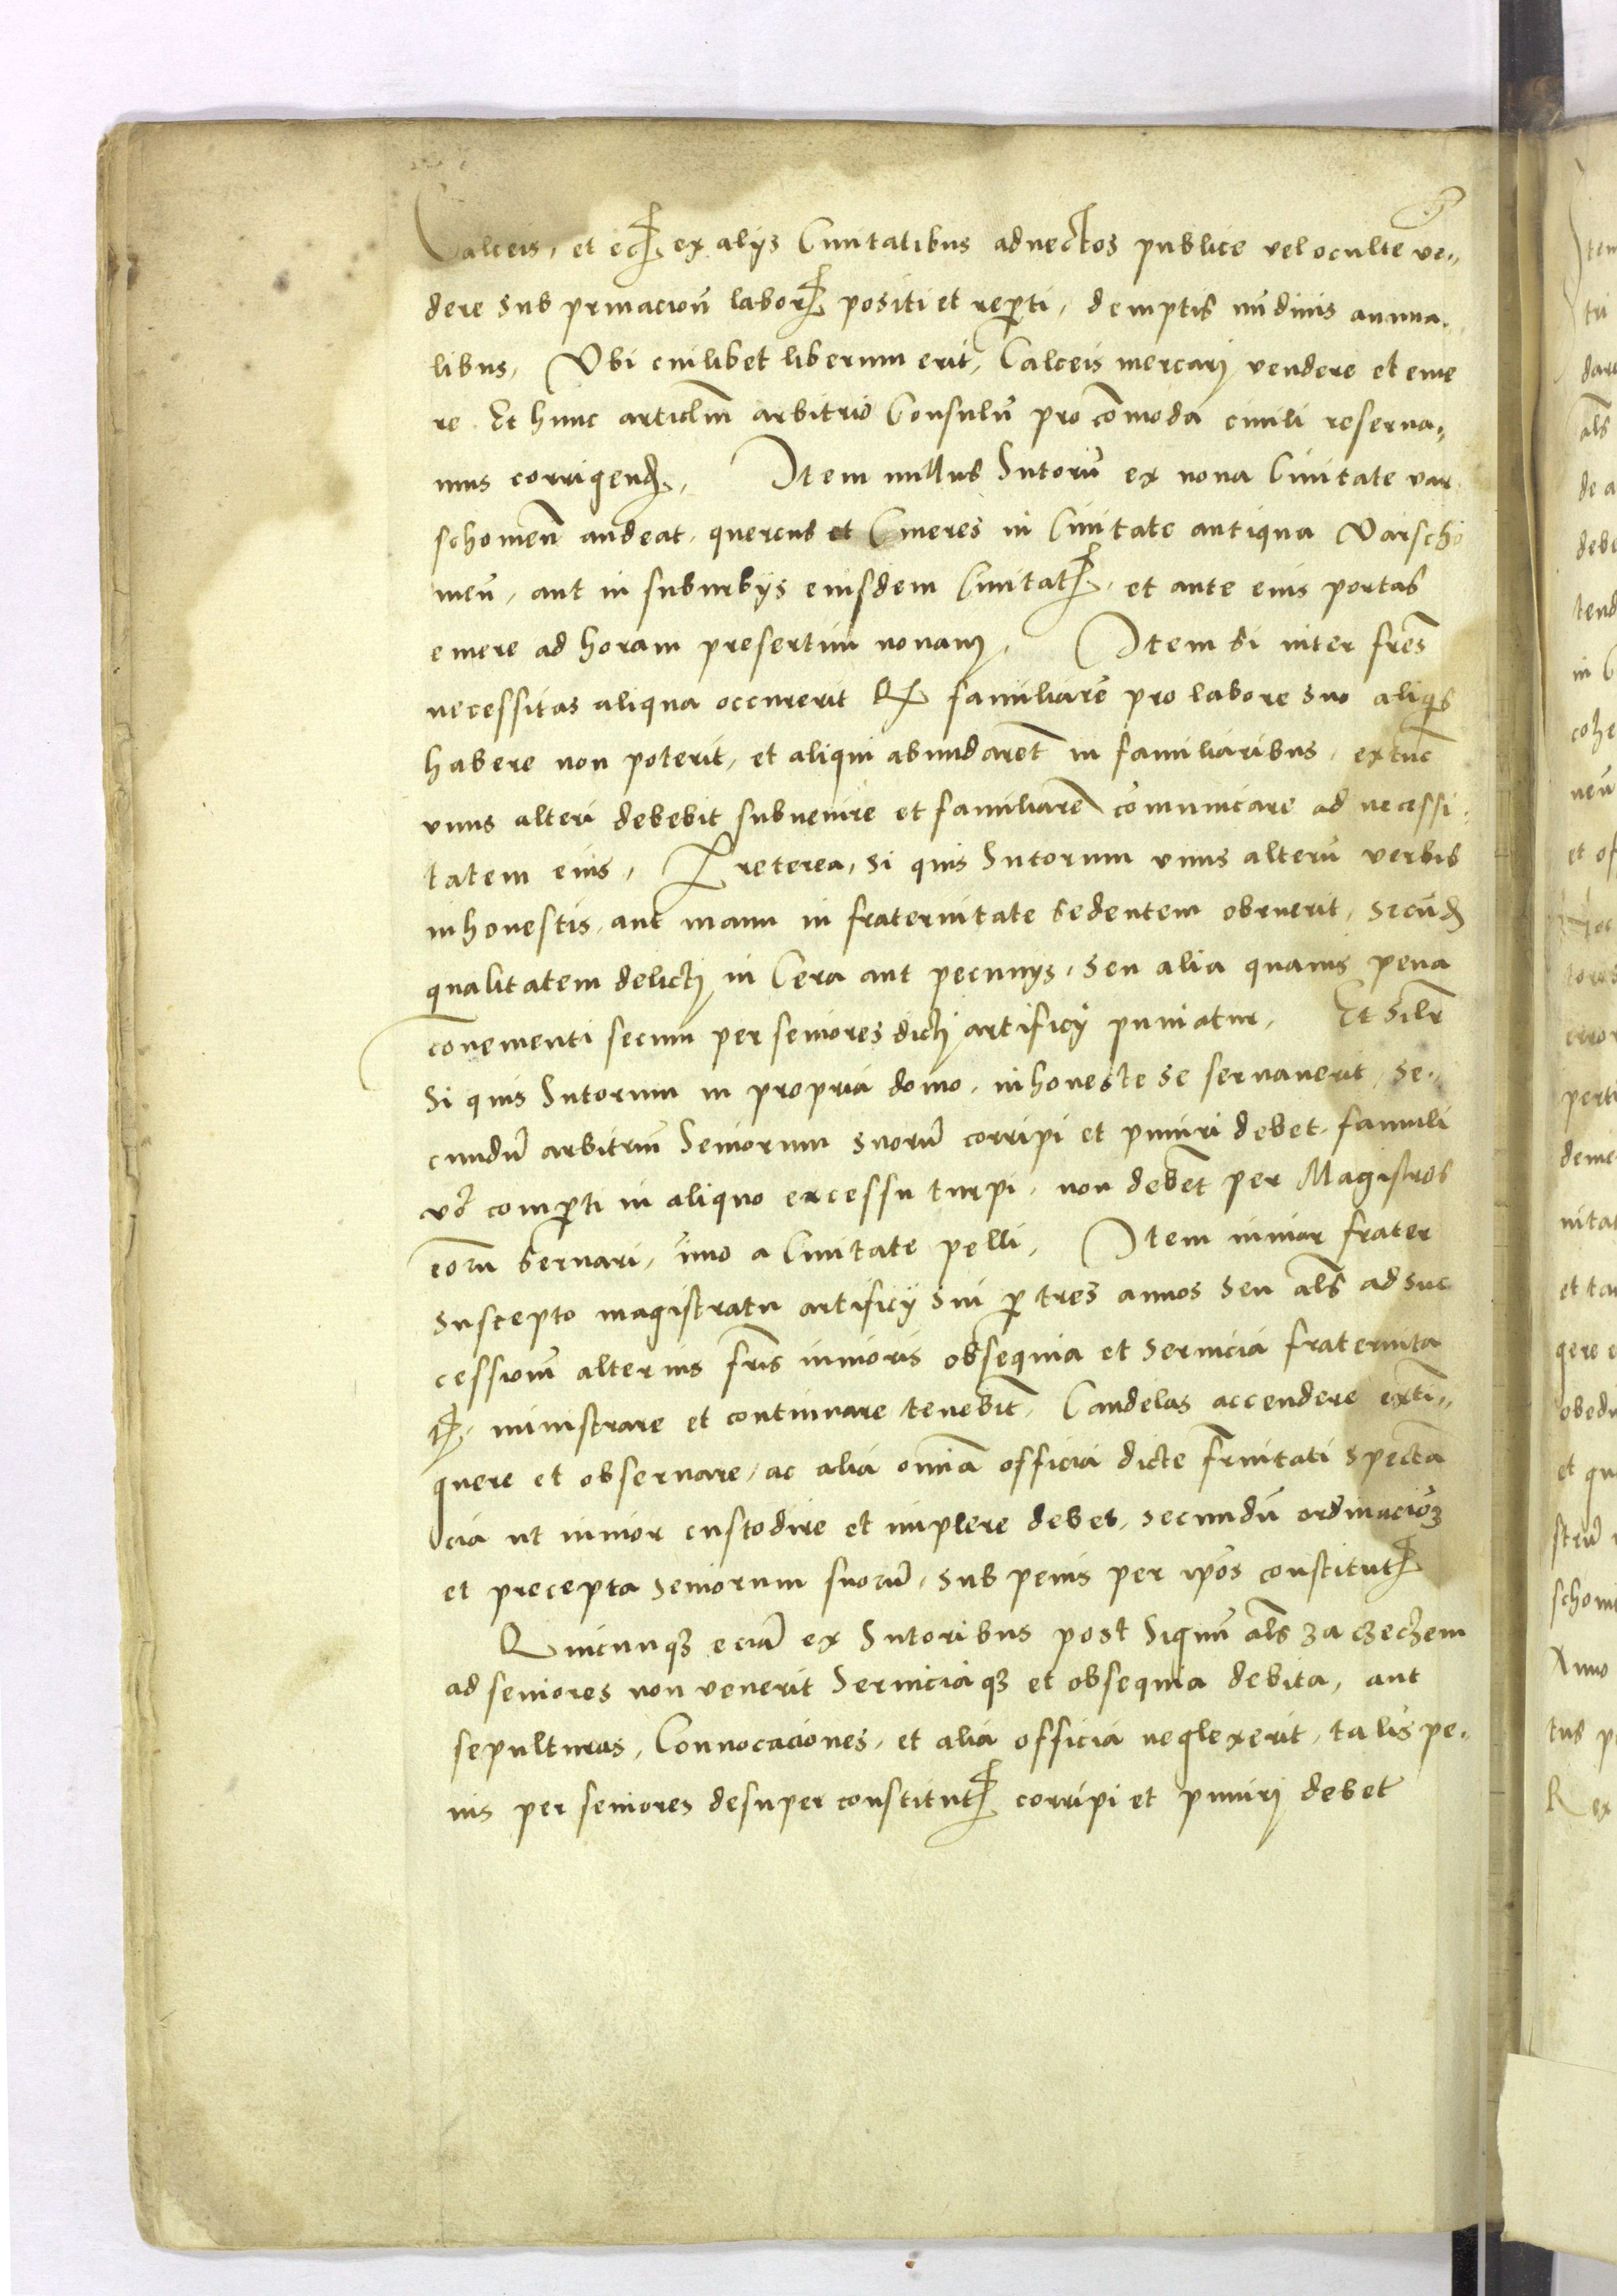 Calceis, et ec̄ ex alijs Ciuitatibus aduectos publice vel oculte ve„
dere sub priuacioñ laborꝭ positi et reꝑti, demptis nūdinis annua„
libus, Vbi cuilibet liberum erit, Calceis mercarj vendere et eme
re. Et hunc articlm̄ arbitrio Consulū pro cōmoda ciuili reserua„
mus corrigenđ, Item nullus Sutorū ex noua Ciuitate var
schouieñ audeat, quercus et Cineres in Ciuitate antiqua Varscho
uieñ, aut in suburbijs eiusdem Ciuitatꝭ, et ante eius portas
emere ad horam presertim nonam, Item si inter fres̄
necessitas aliqua occurerit Qꝫ familiarē pro labore suo aliqs̄
habere non poterit, et aliqui abundarēt in familiaribus, extūc
vnus alteri debebit subuenire et familiarē cōmunicare ad necessi„
tatem eius, Preterea, si quis Sutorum vnus alterū verbis
inhonestis, aut manu in fraternitate sedentem obruerit, secūđ
qualitatem delictj in Cera aut pecunijs, seu alia quauis pena
conuementi secum per seniores dictj artificij puniatur, Et silr̄
Si quis Sutorum in propria domo, inhoneste se seruauerit, se„
cundū arbitriū Seniorum suorū corripi et puniri debet, famuli
vō comꝑti in aliquo excessu turpi, non debēt per Magistros
eorū seruari, imo a Ciuitate pelli, Item iunior frater
suscepto magistratu artificij sui ꝑ tres annos seu als̄ ad suc
cessionē alterius fris̄ iunioris obsequia et seruicia fraternita
tꝭ, ministrare et continuare tenebit̄, Candelas accendere exti„
quere et obseruare, ac alia om̄ia officia dicte frn̄itati spectā
cia ut iunior custodire et implere debet, secundū ordinacioꝫ
et precepta seniorum suorū, sub penis per ip̄os constitutꝭ
Quicunqꝫ eciā ex Sutoribus post Signū als̄ za czechem
ad seniores non venerit Seruiciaqꝫ et obsequia debita, aut
sepulturas, Conuocaciones, et alia officia neglexerit, talis pe„
nis per seniores desuper constitutꝭ corripi et punirj debet